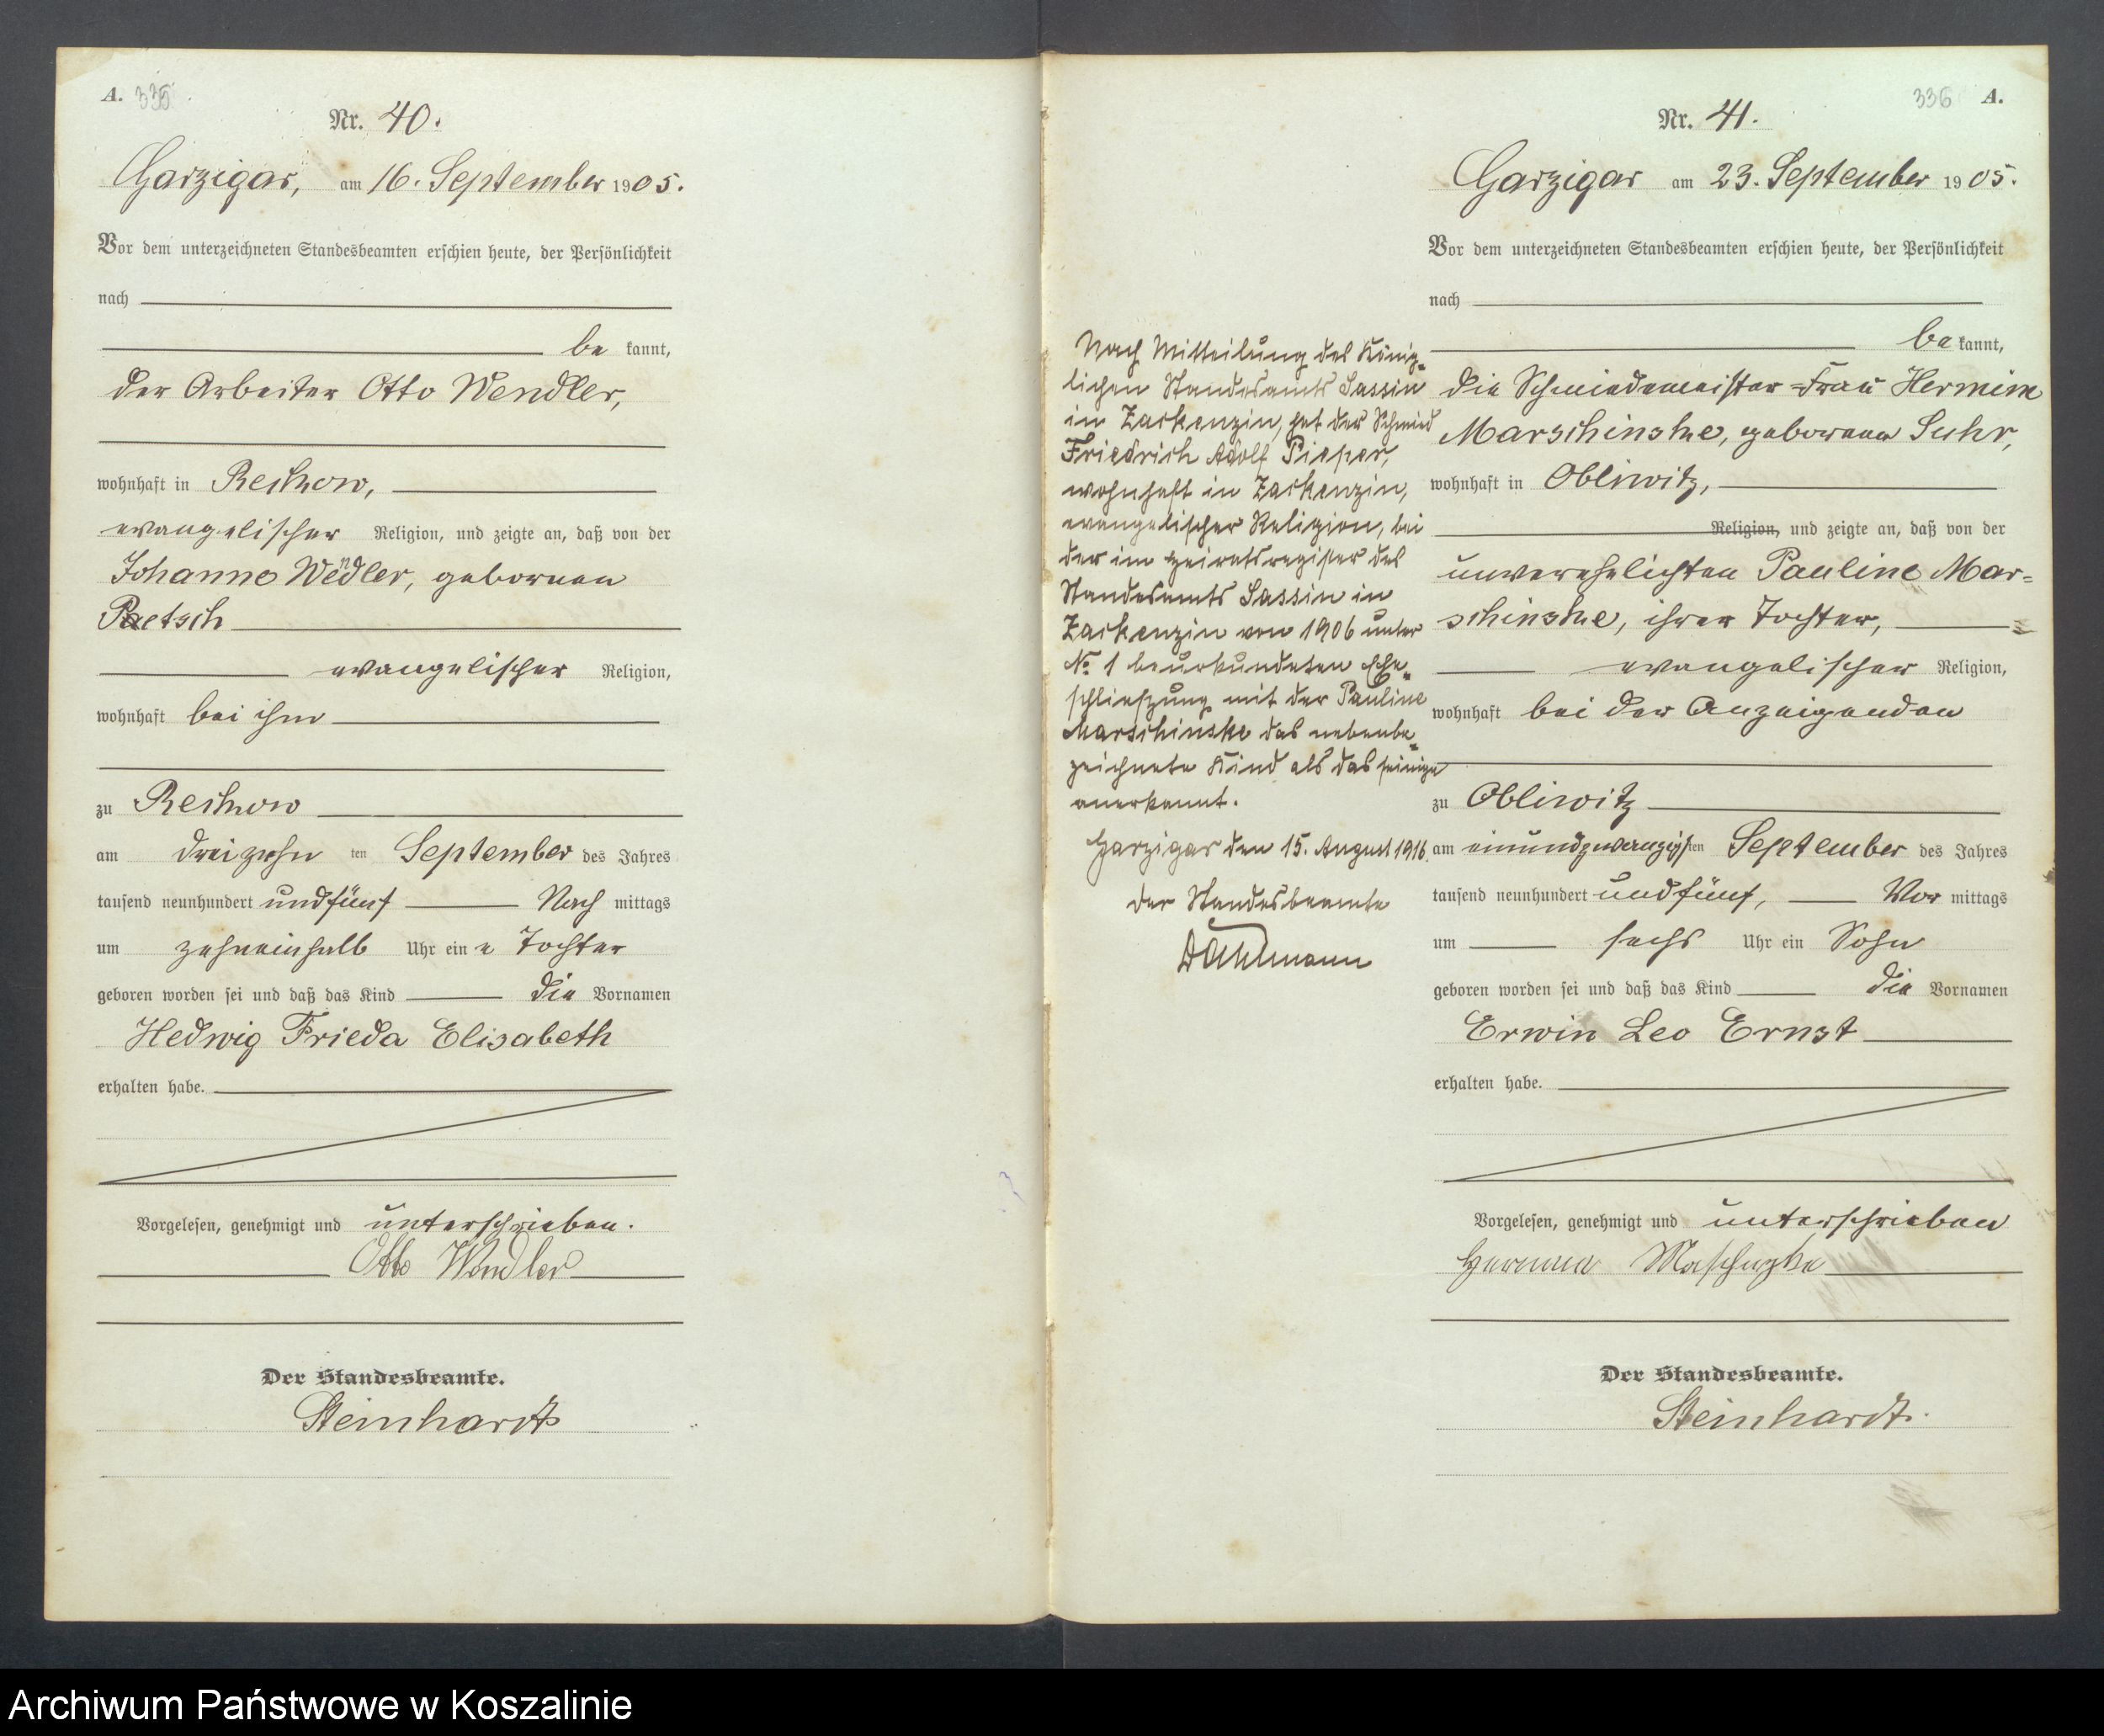 A. 335
Nr. 40.
Garzigar, am 16. September 1905.
Vor dem unterzeichneten Standesbeamten erschien heute, der Persönlichkeit
nach
be kannt,
der Arbeiter Otto Wendler,
wohnhaft in Reckow,
evangelischer Religion, und zeigte an, daß von der
Johanne Wendler, geborenen
Paetsch
evangelischer Religion,
wohnhaft bei ihm
zu Reckow
am dreizehn ten September des Jahres
tausend neunhundert undfünf Nach mittags
um zehneinhalb Uhr ein e Tochter
geboren worden sei und daß das Kind die Vornamen
Hedwig Frieda Elisabeth
erhalten habe.
Vorgelesen, genehmigt und unterschrieben.
Otto Wendler
Der Standesbeamte.
Steinhardt
336 A.
Nr. 41.
Garzigar am 23. September 1905.
Vor dem unterzeichneten Standesbeamten erschien heute, der Persönlichkeit
nach
be kannt,
die Schmiedemeister-Frau Hermine
Marschinske, geborene Suhr,
wohnhaft in Obliwitz,
Religion, und zeigte an, daß von der
unverehelichten Pauline Mar=
schinske, ihrer Tochter,
evangelischer Religion,
wohnhaft bei der Anzeigenden
zu Obliwitz
am einundzwanzigsten September des Jahres
tausend neunhundert undfünf, Vor mittags
um sechs Uhr ein Sohn
geboren worden sei und daß das Kind die Vornamen
Erwin Leo Ernst
erhalten habe.
Vorgelesen, genehmigt und unterschrieben
Der Standesbeamte.
Steinhardt.
Nach Mitteilung des König=
lichen Standesamts Sassin
in Zackenzin, hat der Schmied
Friedrich Adolf Pieper,
wohnhaft in Zackenzin,
evangelischer Religion, bei
der im Heiratsregister des
Standesamts Sassin in
Zackenzin von 1906 unter
No. 1 beurkundeten Ehe=
schließung mit der Pauline
Marschinske das nebenbe=
zeichnete Kind als das seinige
anerkannt.
Garzigar den 15. August 1916.
Der Standesbeamte
Archiwum Państwowe w Koszalinie